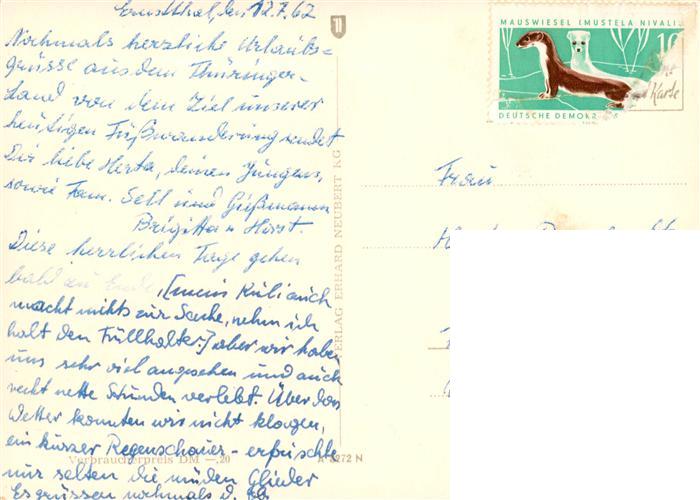 Ernstthal, den 12.7.62
Nochmals herzliche Urlaubs=
grüsse aus dem Thüringer-
Land von dem Ziel unserer
heutigen Fußwanderung sendet
Dir liebe Herta, deinen Jungens,
sowie Fam. Sell und Gißmann
Brigitta u Horst.
Diese herrlichen Tage gehen
bald zu Ende, [mein Kuli auch
macht nichts zur Sache, nehm ich
halt den Füllhalter.] aber wir haben
uns sehr viel angesehen und auch
recht nette Stunden verlebt. Über das
Wetter konnten wir nicht klagen,
ein kurzer Regenschauer - erfrischte
nur selten die müden Glieder
Es grüssen nochmals d. Ob
Verbraucherpreis DM —,20
A 5272 N
VERLAG ERHARD NEUBERT KG
MAUSWIESEL (MUSTELA NIVALIS
10
DEUTSCHE DEMOK
Karte
Frau